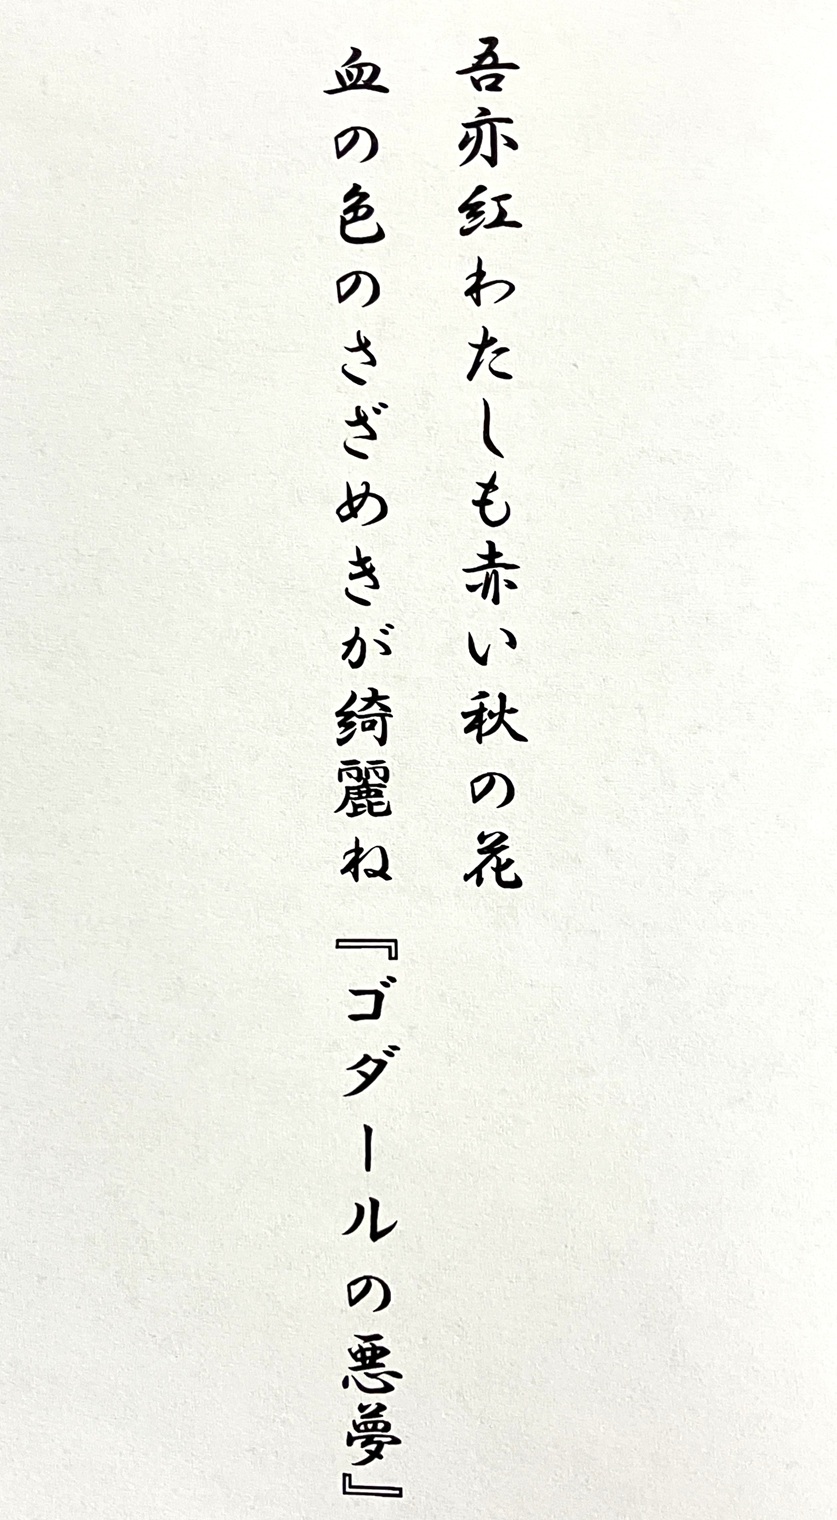 吾亦紅わたしも赤い秋の花
血の色のさざめきが綺麗ね『ゴダールの悪夢』